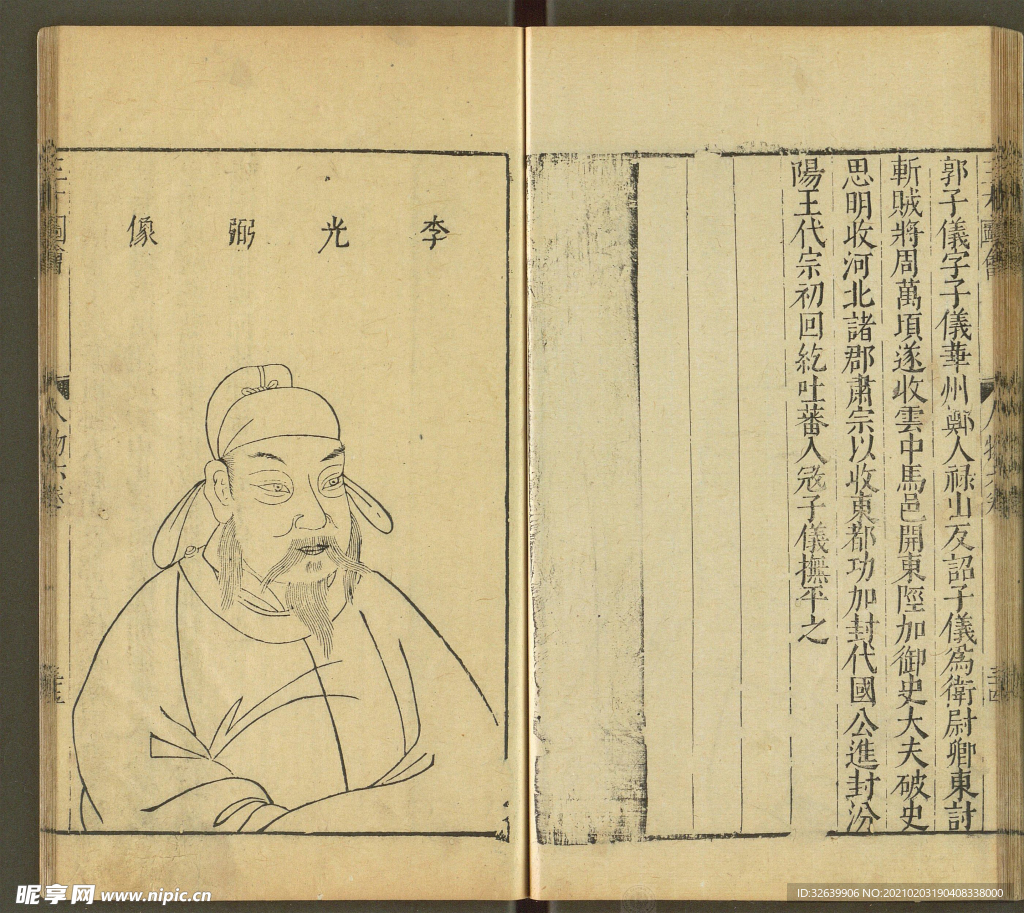 郭子儀字子儀華州鄭人祿山反詔子儀為衛尉卿東討
斬賊將周萬頃遂收雲中馬邑開東陘加御史大夫破史
思明收河北諸郡肅宗以收東都功加封代國公進封汾
陽王代宗初回紇吐蕃入寇子儀撫平之
李光弼像
人物六卷
昵享网 www.nipic.cn
ID:32639906 NO:20210203190408338000